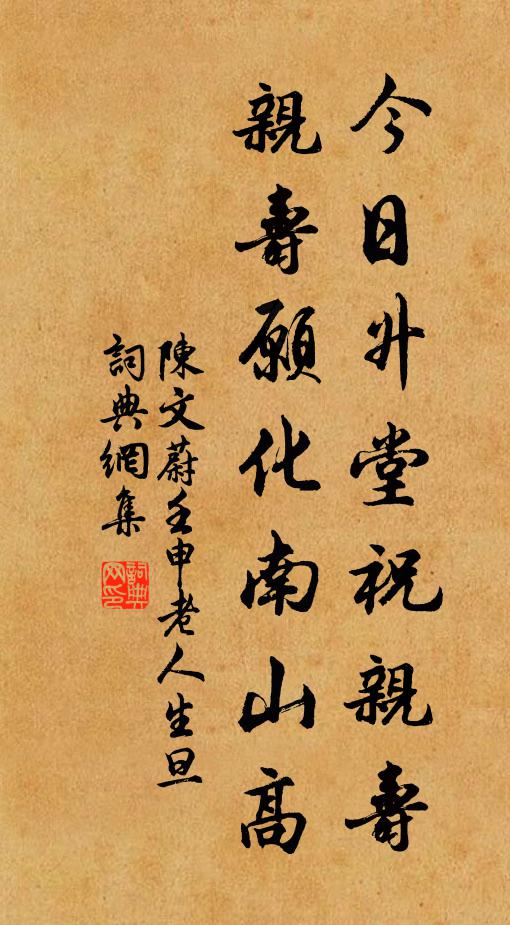 今日升堂祝親壽
親壽願化南山高
陳文蔚壬申老人生旦
詞典網集
詞典網印